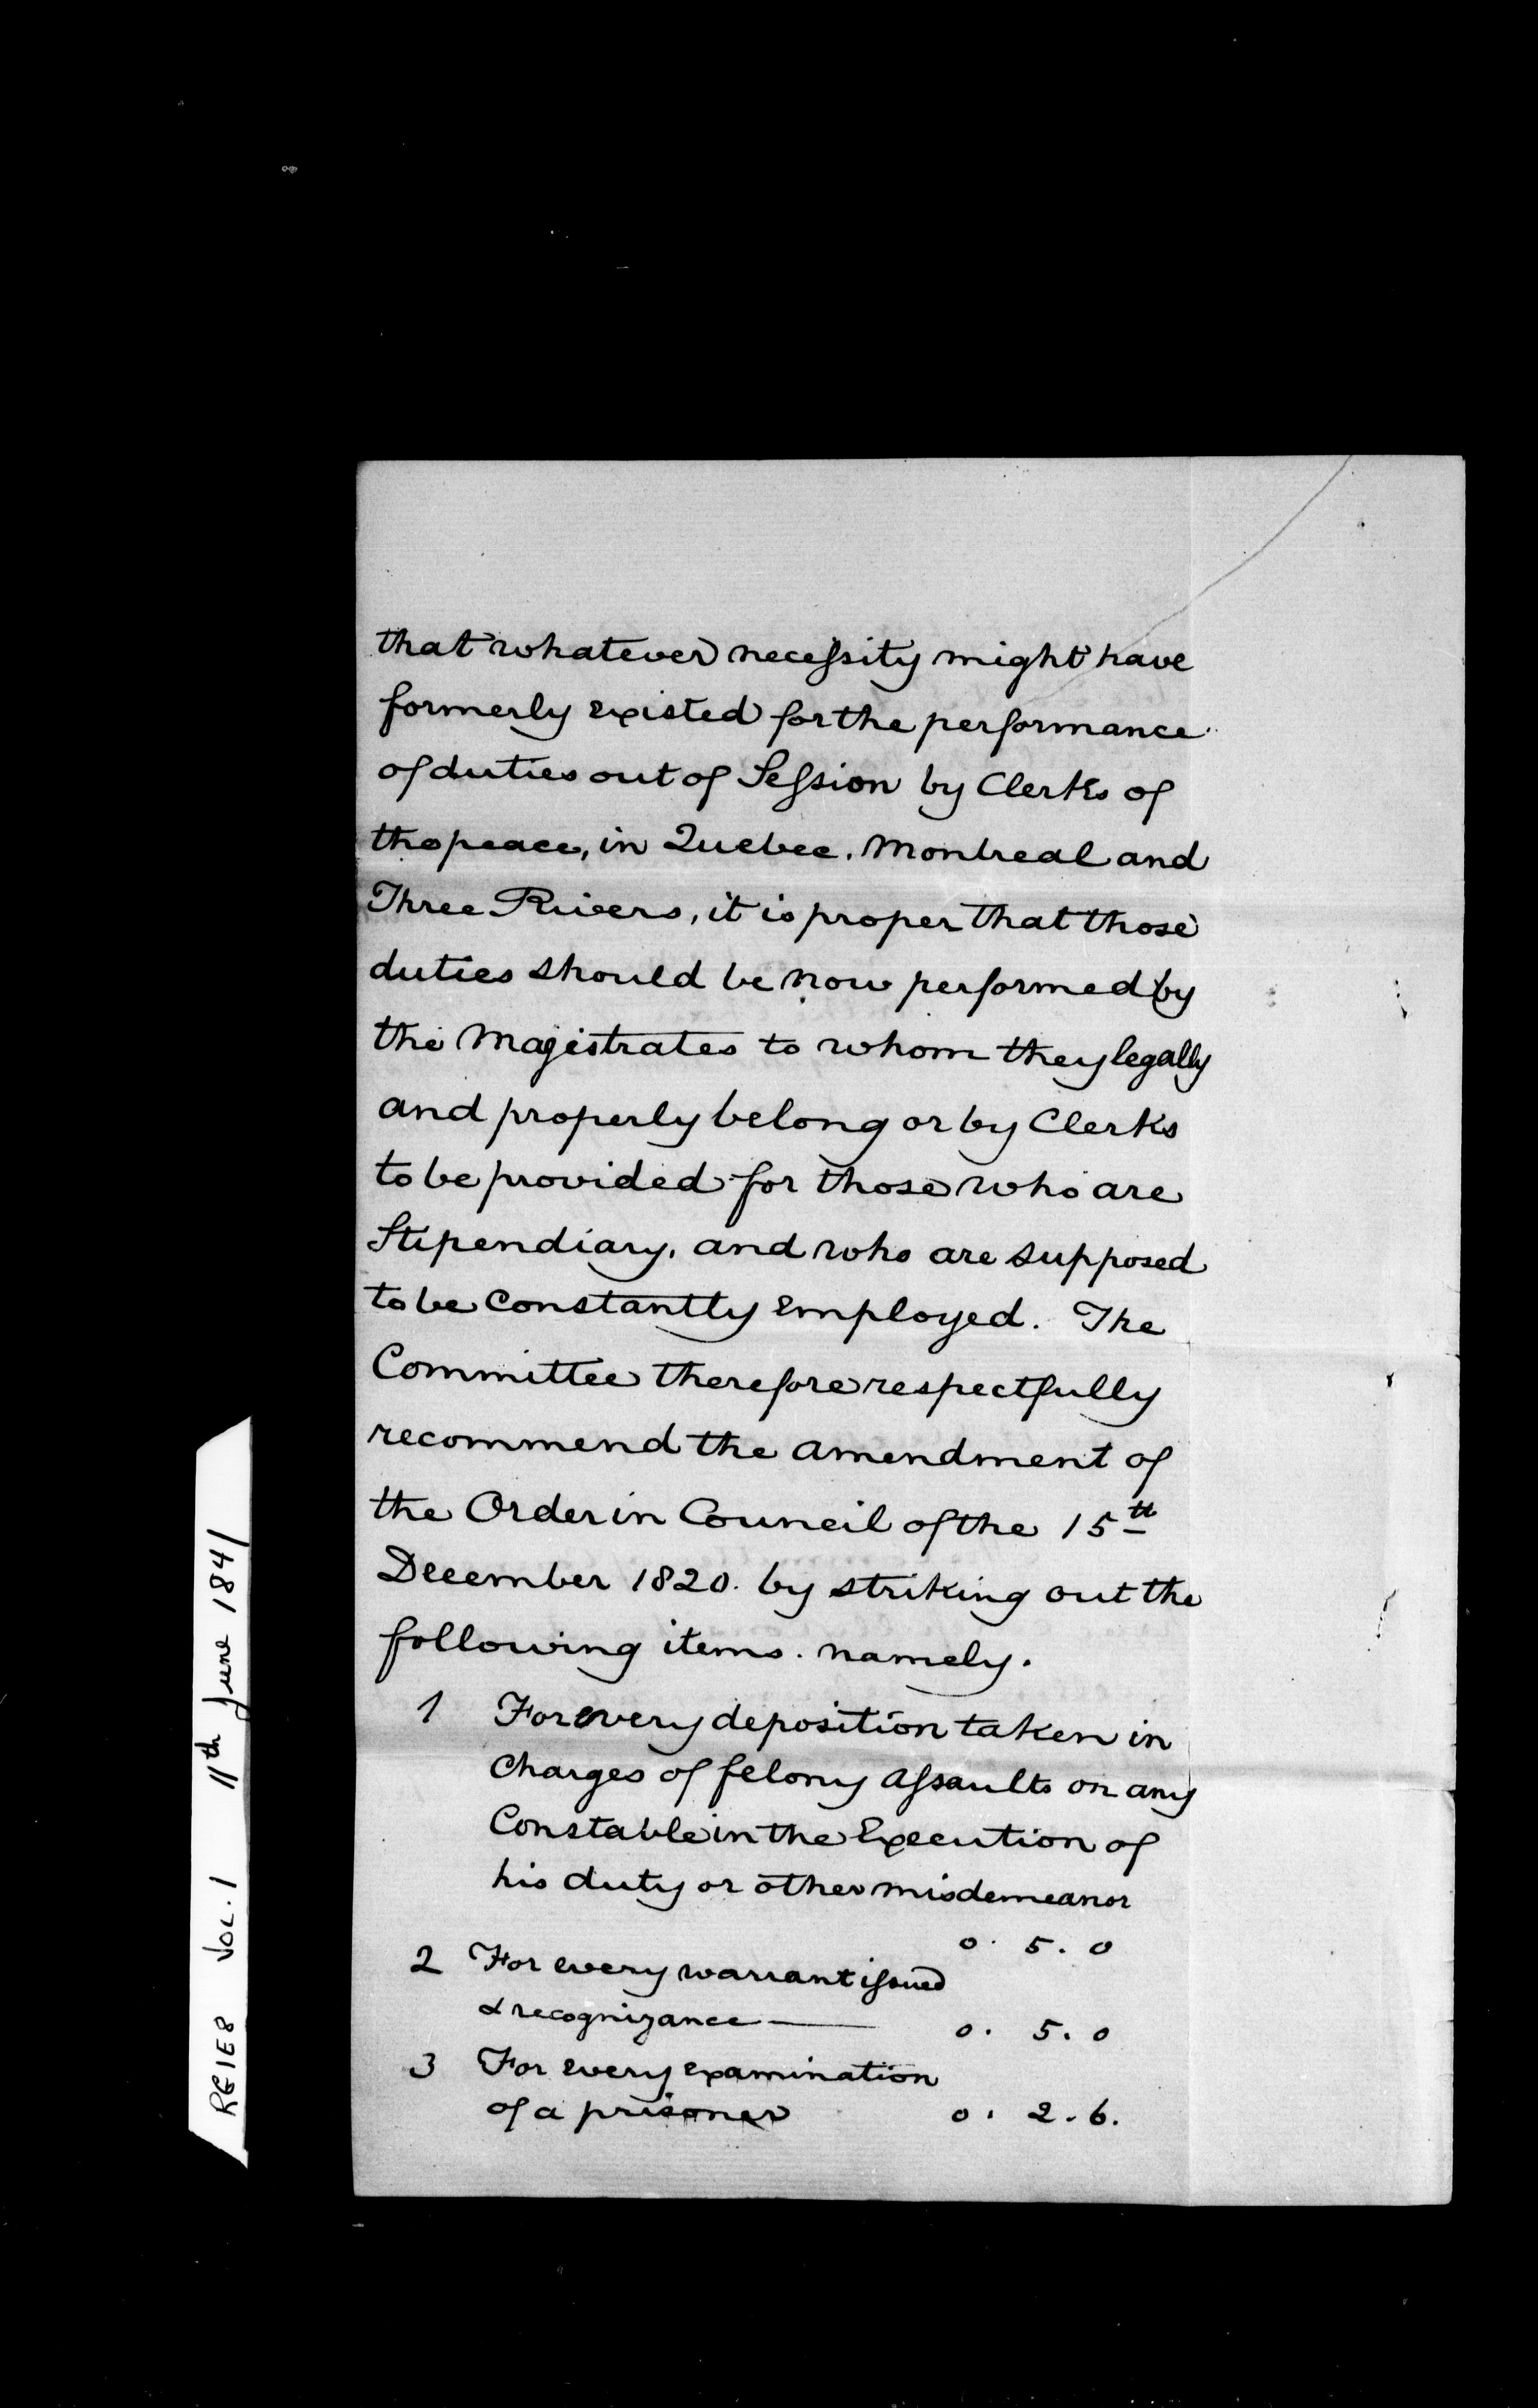 that whatever necessity might have
formerly existed for the performance
of duties out of Session by Clerks of
the peace, in Quebec, Montreal and
Three Rivers, it is proper that those
duties should be now performed by
the Magistrates to whom they legally
and properly belong or by Clerks
to be provided for those who are
Stipendiary, and who are supposed
to be Constantly employed. The
Committee therefore respectfully
recommend the amendment of
the Order in Council of the 15th
December 1820. by striking out the
following items. namely.
1 For every deposition taken in
Charges of felony Assaults on any
Constable in the Execution of
his duty or other misdemeanor
0. 5. 0
2 For every warrant issued
& recognizance — 0. 5. 0
3 For every examination
of a prisoner 0. 2. 6.
RG1E8 VOL. 1 11th June 1841